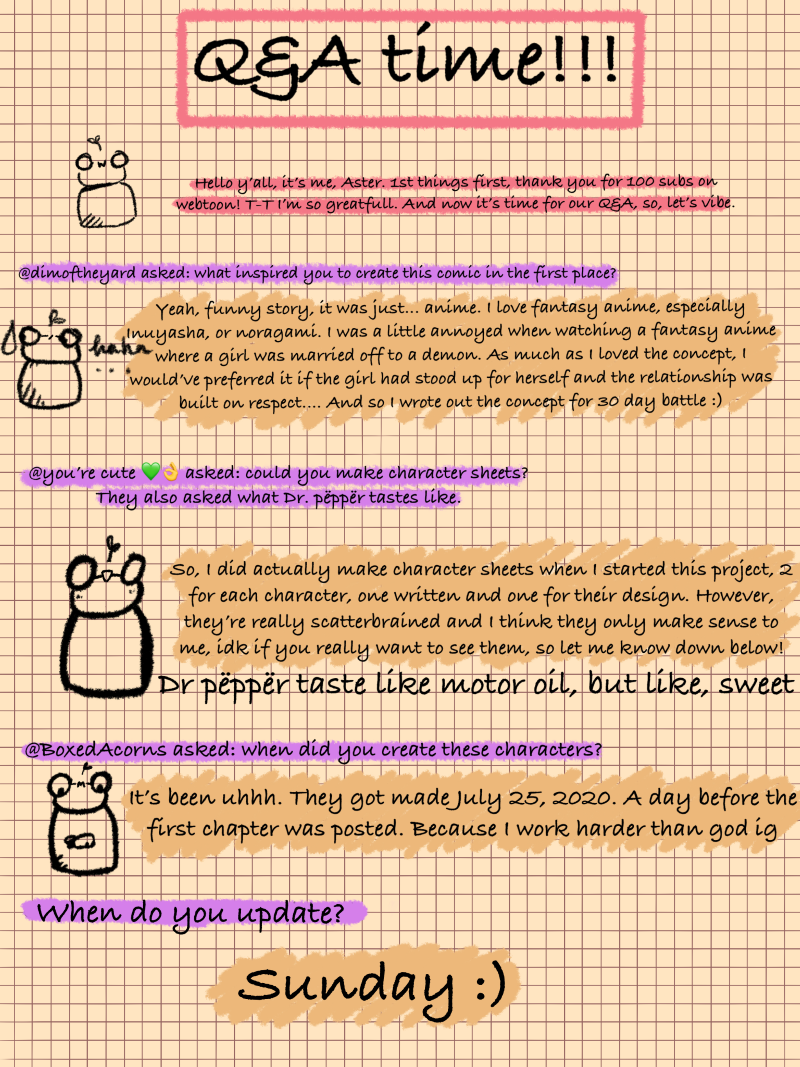 Q&A time!!!
Hello y'all, it's me, Aster. 1st things first, thank you for 100 subs on
webtoon! T-T I'm so greatfull. And now it's time for our Q&A, so, let's vibe.
@dimoftheyard asked: what inspired you to create this comic in the first place?
Yeah, funny story, it was just... anime. I love fantasy anime, especially
Inuyasha, or noragami. I was a little annoyed when watching a fantasy anime
haha
where a girl was married off to a demon. As much as I loved the concept, I
...
would've preferred it if the girl had stood up for herself and the relationship was
built on respect.... And so I wrote out the concept for 30 day battle :)
@you're cute 💚👌 asked: could you make character sheets?
They also asked what Dr. pëppër tastes like.
So, I did actually make character sheets when I started this project, 2
for each character, one written and one for their design. However,
they're really scatterbrained and I think they only make sense to
me, idk if you really want to see them, so let me know down below!
Dr pëppër taste like motor oil, but like, sweet
@BoxedAcorns asked: when did you create these characters?
It's been uhhh. They got made July 25, 2020. A day before the
first chapter was posted. Because I work harder than god ig
When do you update?
Sunday :)